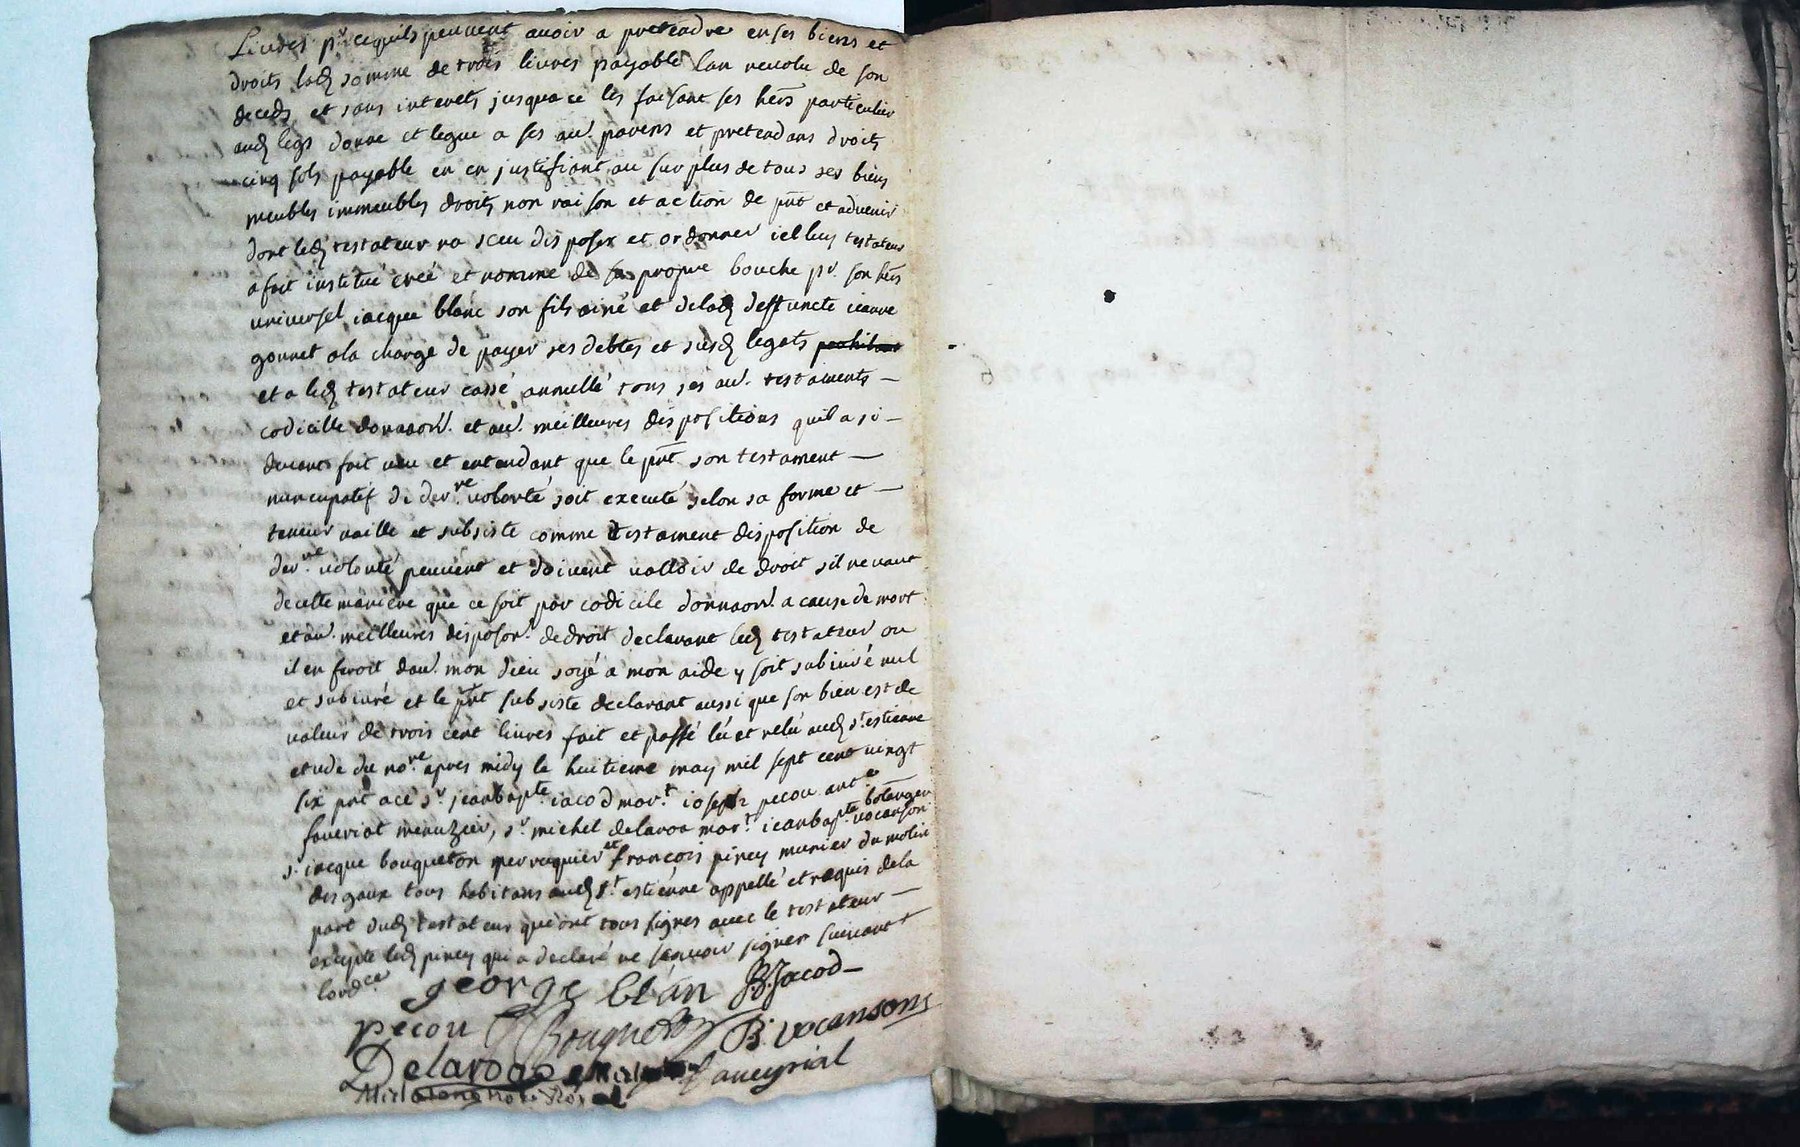 Liudes pr. cequils peuvent auoir a pretendre en ses biens et
droits lad somme de trois liures payable lan reuolu de son
deceds et sans interets jusqua ce les faisant ses hers particulier
aud legs donne et legue a ses au. parens et pretendans droits
cinq sols payable en en justifiant au surplus de tous ses biens
meubles immeubles droits non raison et action de pnt et aduenir
dont led testateur na sceu disposer et ordonner icelluy testateur
a fait institué creé et nomme de sa propre bouche pr. son hers
uniuersel jacque blanc son fils ainé et delad deffuncte jeanne
gonnet a la charge de payer ses debtes et susd legats
et a led testateur cassé annullé tous ses au. testaments —
codicille donaaon. et au. meilleures dispositions quil a si —
deuant fait ueu et entendant que le pnt son testament —
nuncupatif de der.re uolonté soit executé selon sa forme et —
teneur uaille et subsiste comme testament disposition de
der.re uolonté peuuent et doiuent ualloir de droit sil ne uaut
de cette maniere que ce soit par codicile donnaon. a cause de mort
et au. meilleures disposon. de droit declarant led testateur ou
il en feroit dau. mon dieu soyé a mon aide y soit subiuré nul
et subiuré et le pnt subsiste declarant aussi que son bien est de
ualeur de trois cent liures fait et passé lu et relu aud st. estienne
etude du no.re apres midy le huitieme may mil sept cent uingt
six pnt a ce sr. jean bapte. jacod mar.t joseph pecou ant.e
faueriat menuzier, sr. michel delaroa mar.t jean bapte. uocanson bolanger
sr. jacque bouqueton perruquier et françois pirey munier du molin
des gaux tous habitans aud st. estienne appellé et requis de la
part dud testateur qui ont tous signes auec le testateur —
excepte led pirey qui a declaré ne scauoir signer suiuant
lord.ce
george blan B. Jacod
pecou Bouqueton B. Vocanson
Delaroa faueyrial